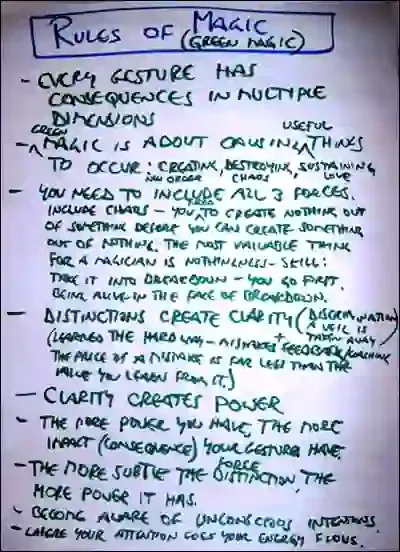 RULES OF MAGIC
(GREEN MAGIC)
- EVERY GESTURE HAS
CONSEQUENCES IN MULTIPLE
DIMENSIONS
GREEN USEFUL
- MAGIC IS ABOUT CAUSING THINGS
TO OCCUR: CREATING, DESTROYING, SUSTAINING
NEW ORDER CHAOS LOVE
- YOU NEED TO INCLUDE ALL 3 FORCES.
NEED
INCLUDE CHAOS - YOU TO CREATE NOTHING OUT
OF SOMETHING BEFORE YOU CAN CREATE SOMETHING
OUT OF NOTHING. THE MOST VALUABLE THING
FOR A MAGICIAN IS NOTHINGNESS - SKILL:
TAKE IT INTO BREAKDOWN - YOU GO FIRST.
BEING ALIVE IN THE FACE OF BREAKDOWN.
- DISTINCTIONS CREATE CLARITY (DISCRIMINATION
A VEIL IS
TAKEN AWAY)
(LEARNED THE HARD WAY - MISTAKES + FEEDBACK/COACHING
THE PRICE OF A MISTAKE IS FAR LESS THAN THE
VALUE YOU LEARN FROM IT.)
- CLARITY CREATES POWER
- THE MORE POWER YOU HAVE, THE MORE
IMPACT (CONSEQUENCE) YOUR GESTURES HAVE.
FORCE
- THE MORE SUBTLE THE DISTINCTION, THE
MORE POWER IT HAS.
- BECOME AWARE OF UNCONSCIOUS INTENTIONS.
- WHERE YOUR ATTENTION GOES YOUR ENERGY FLOWS.